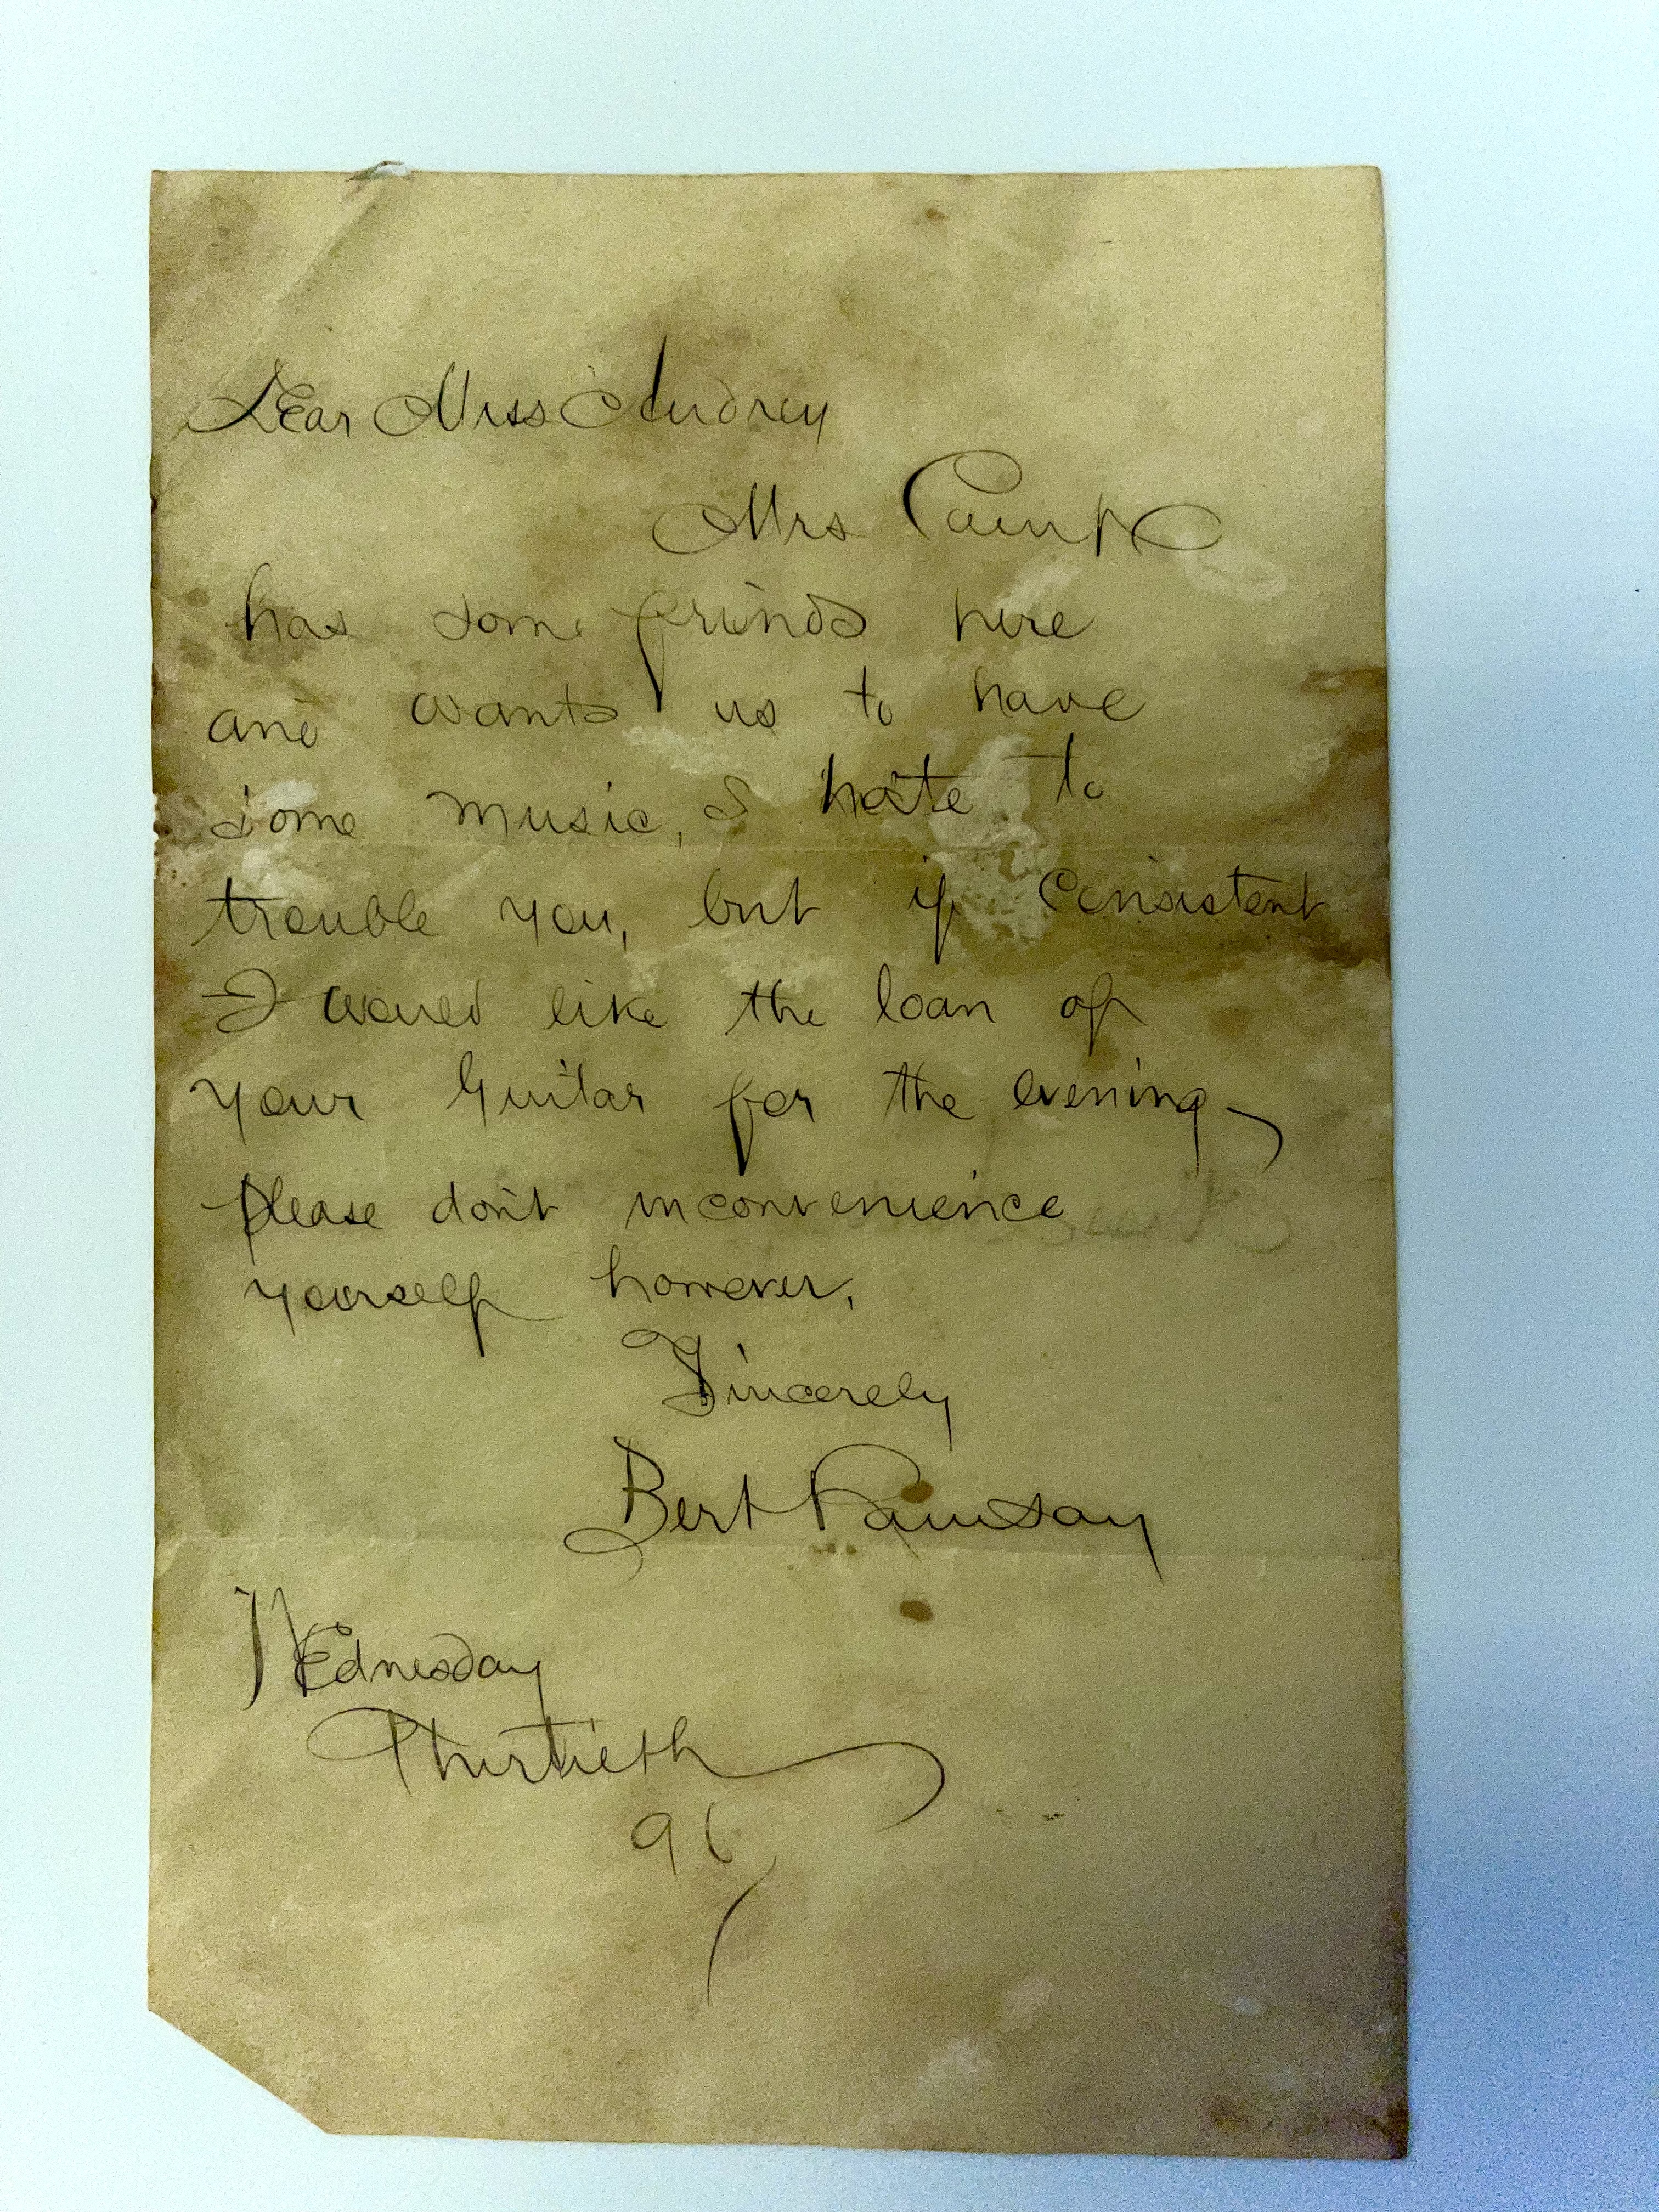 Dear Miss Audrey
Mrs
has some friends here
and wants us to have
some music, I hate to
trouble you, but if Consistent
I would like the loan of
your Guitar for the evening
please don't inconvenience
yourself however,
Sincerely
Bert Ramsay
Wednesday
Thirtieth
96